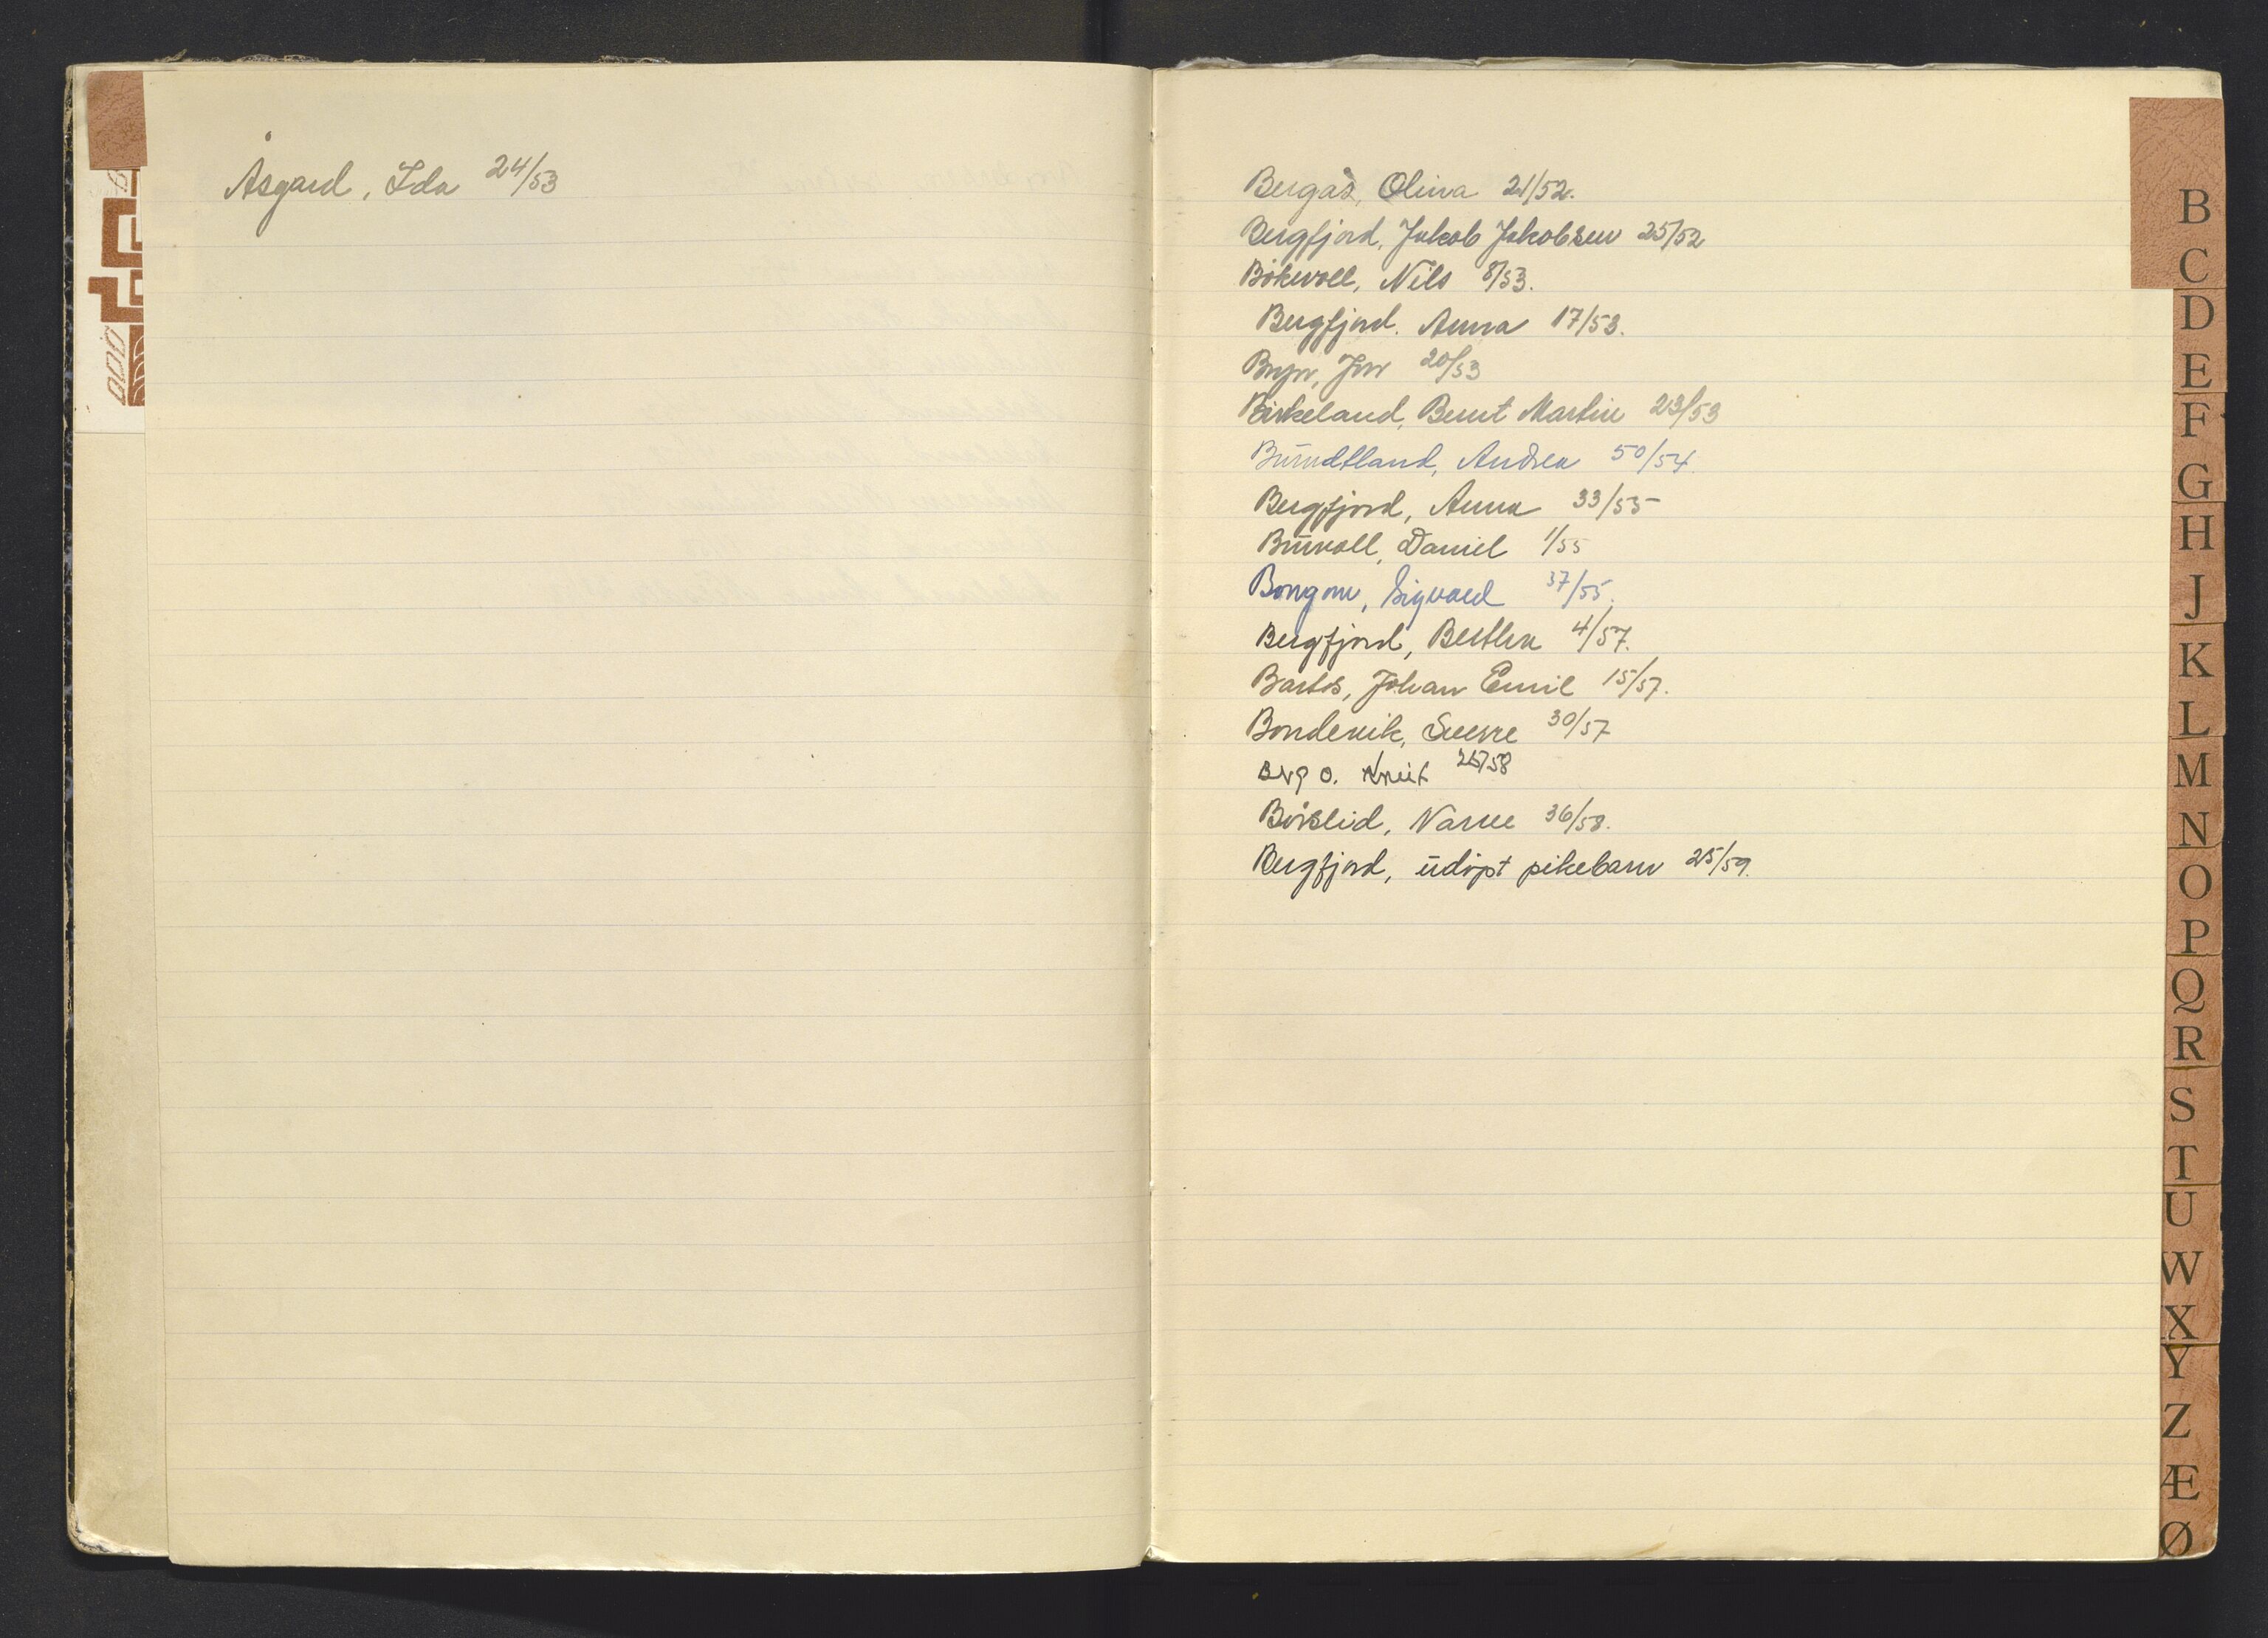 Åsgard, Ida 24/53
Bergås, Olina 21/52.
Bergfjord, Jakob Jakobsen 25/52
Bökvoll, Nils 8/53.
Bergfjord. Anna 17/53.
Bryn, Jon 20/53
Birkeland, Bernt Martin 23/53
Bundtland, Andrea 50/54.
Bergfjord, Anna 33/55
Buvoll, Daniel 1/55
Bongom, Sigvard 37/55.
Bergfjord, Berthea 4/57.
Bartos, Johan Emil 15/57.
Bondevik, Sverre 30/57
Berg O. Knut 25/58
Börslid, Narve 36/58.
Bergfjord, udöpt pikebarn 25/59.
B
C
D
E
F
G
H
J
K
L
M
N
O
P
Q
R
S
T
U
W
X
Y
Z
Æ
Ø